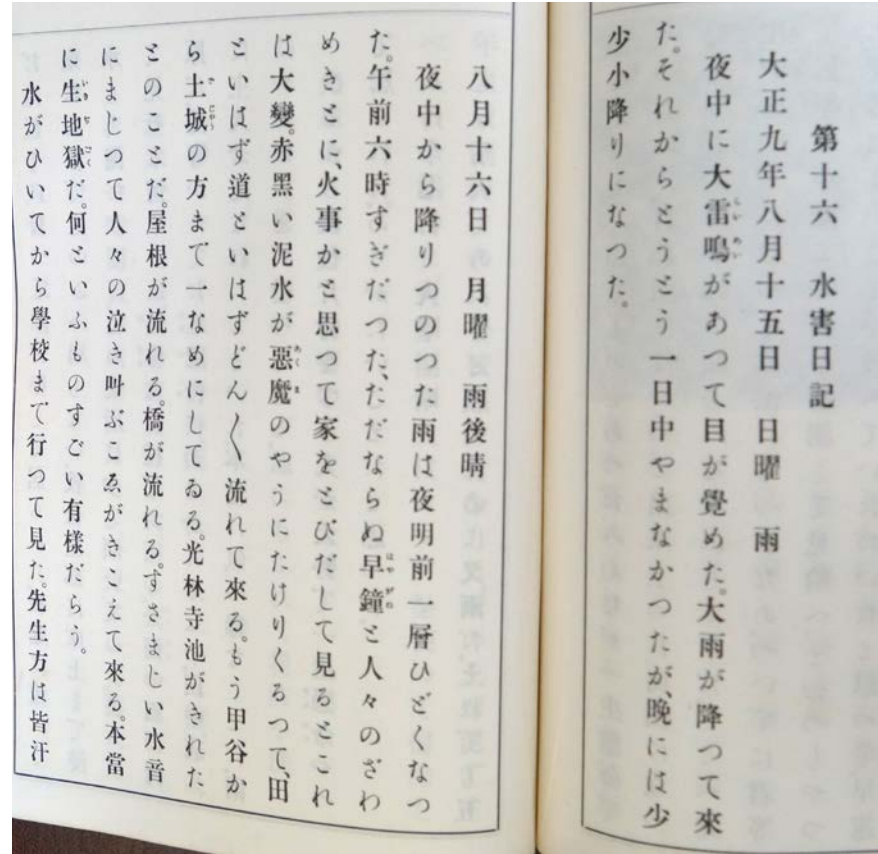 第十六　水害日記
大正九年八月十五日　日曜　雨
夜中に大雷鳴があつて目が覺めた。大雨が降つて來
た。それからとうとう一日中やまなかつたが、晩には少
少小降りになつた。
八月十六日　月曜　雨後晴
夜中から降りつのつた雨は夜明前一層ひどくなつ
た。午前六時すぎだつた、ただならぬ早鐘と人々のざわ
めきとに、火事かと思つて家をとびだして見るとこれ
は大變。赤黑い泥水が惡魔のやうにたけりくるつて、田
といはず道といはずどん〱流れて來る。もう甲谷か
ら土城の方まで一なめにしてゐる。光林寺池がきれた
とのことだ。屋根が流れる。橋が流れる。すさまじい水音
にまじつて人々の泣き叫ぶこゑがきこえて來る。本當
に生地獄だ。何といふものすごい有樣だらう。
水がひいてから學校まで行つて見た。先生方は皆汗